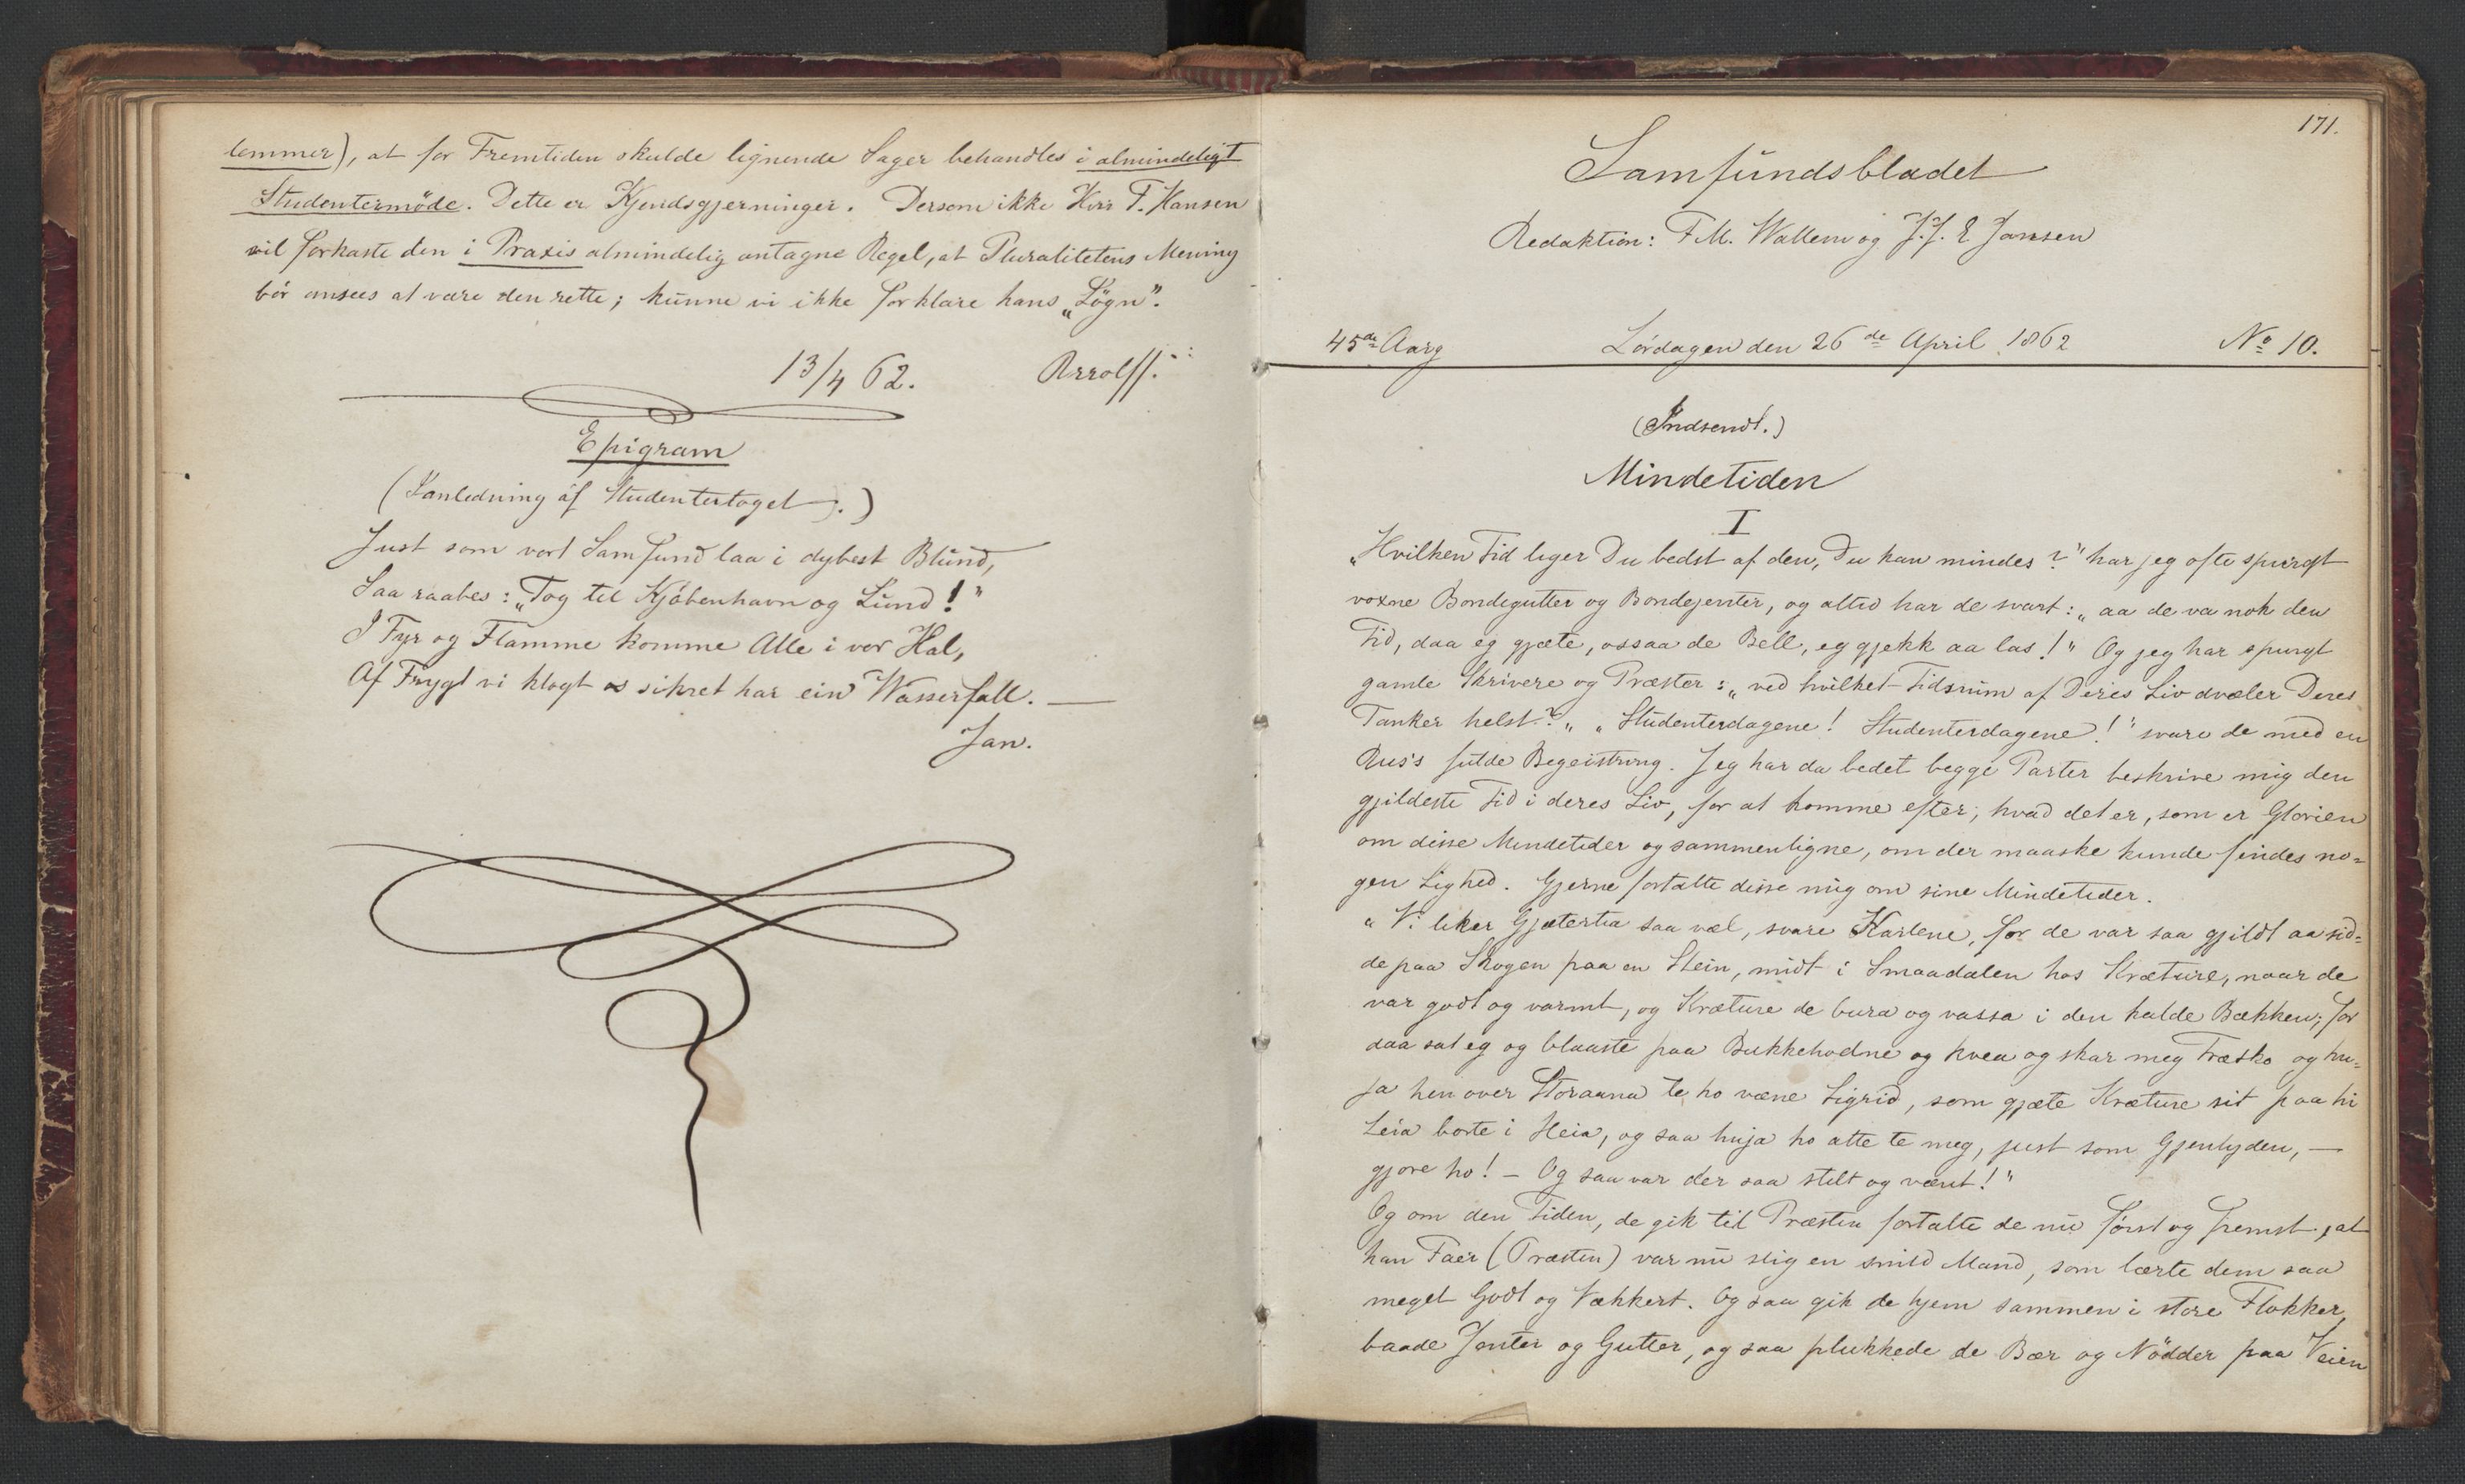 lemmer), at for Fremtiden skulde lignende Sager behandles i almindeligt
Studentermöde. Dette er Kjendsgjerninger. Dersom ikke Herr F. Hansen
vil forkaste den i Praxis almindelig antagne Regel, at Pluralitetens Mening
bör ansees at være den rette; kunne vi ikke forklare hans „Lögn".
13/4 62.
Epigram
(I anledning af Studentertoget.)
Just som vort Samfund laa i dybest Blund,
Saa raabes: „Tog til Kjöbenhavn og Lund!"
I Fyr og Flamme komme Alle i vor Hal,
Af Frygt vi klogt os sikret har ein Wasserfall. —
Jan.
171.
Samfundsbladet
Redaktion: F. M. Wallem og J. J. E Jansen
45de Aarg Lördagen den 26de April 1862 No 10.
(Indsendt.)
Mindetiden
I
„Hvilken Tid liger Du bedst af den, Du kan mindes?" har jeg ofte spurgt
voxne Bondegutter og Bondejenter, og altid har de svart: „aa de va nok den
Tid, daa eg gjæte, ossaa de Bell, eg gjekk aa las!" Og jeg har spurgt
gamle Skrivere og Præster: „ved hvilket Tidsrum af Deres Liv dvæler Deres
Tanker helst?" „Studenterdagene! Studenterdagene!" svare de med en
Rus's fulde Begeistring. Jeg har da bedet begge Parter beskrive mig den
gjildeste Tid i deres Liv, for at komme efter, hvad det er, som er Glorien
om disse Mindetider og sammenligne, om der maaske kunde findes no=
gen Lighed. Gjerne fortalte disse mig om sine Mindetider.
„Vi liker Gjætertia saa væl, svare Karlene, for de var saa gjildt aa sid=
de paa Skogen paa en Stein, midt i Smaadalen hos Kræture, naar de
var godt og varmt, og Kræture de bura og vassa i den kalde Bækken; for
daa sat eg og blaaste paa Bukkehodne og kvea og skar meg Træsko og hu=
ja hen over Storaana te ho væne Sigrid, som gjæte Kræture sit paa hi
Leia borte i Heia, og saa huja ho atte te meg, just som Gjenlyden, —
gjore ho! — Og saa var der saa stilt og vænt!"
Og om den Tiden, de gik til Præsten fortalte de nu först og fremst, at
han Faer (Præsten) var nu slig en snild Mand, som lærte dem saa
meget Godt og Vakkert. Og saa gik de hjem sammen i store Flokker,
baade Jenter og Gutter, og saa plukkede de Bær og Nödder paa Veien